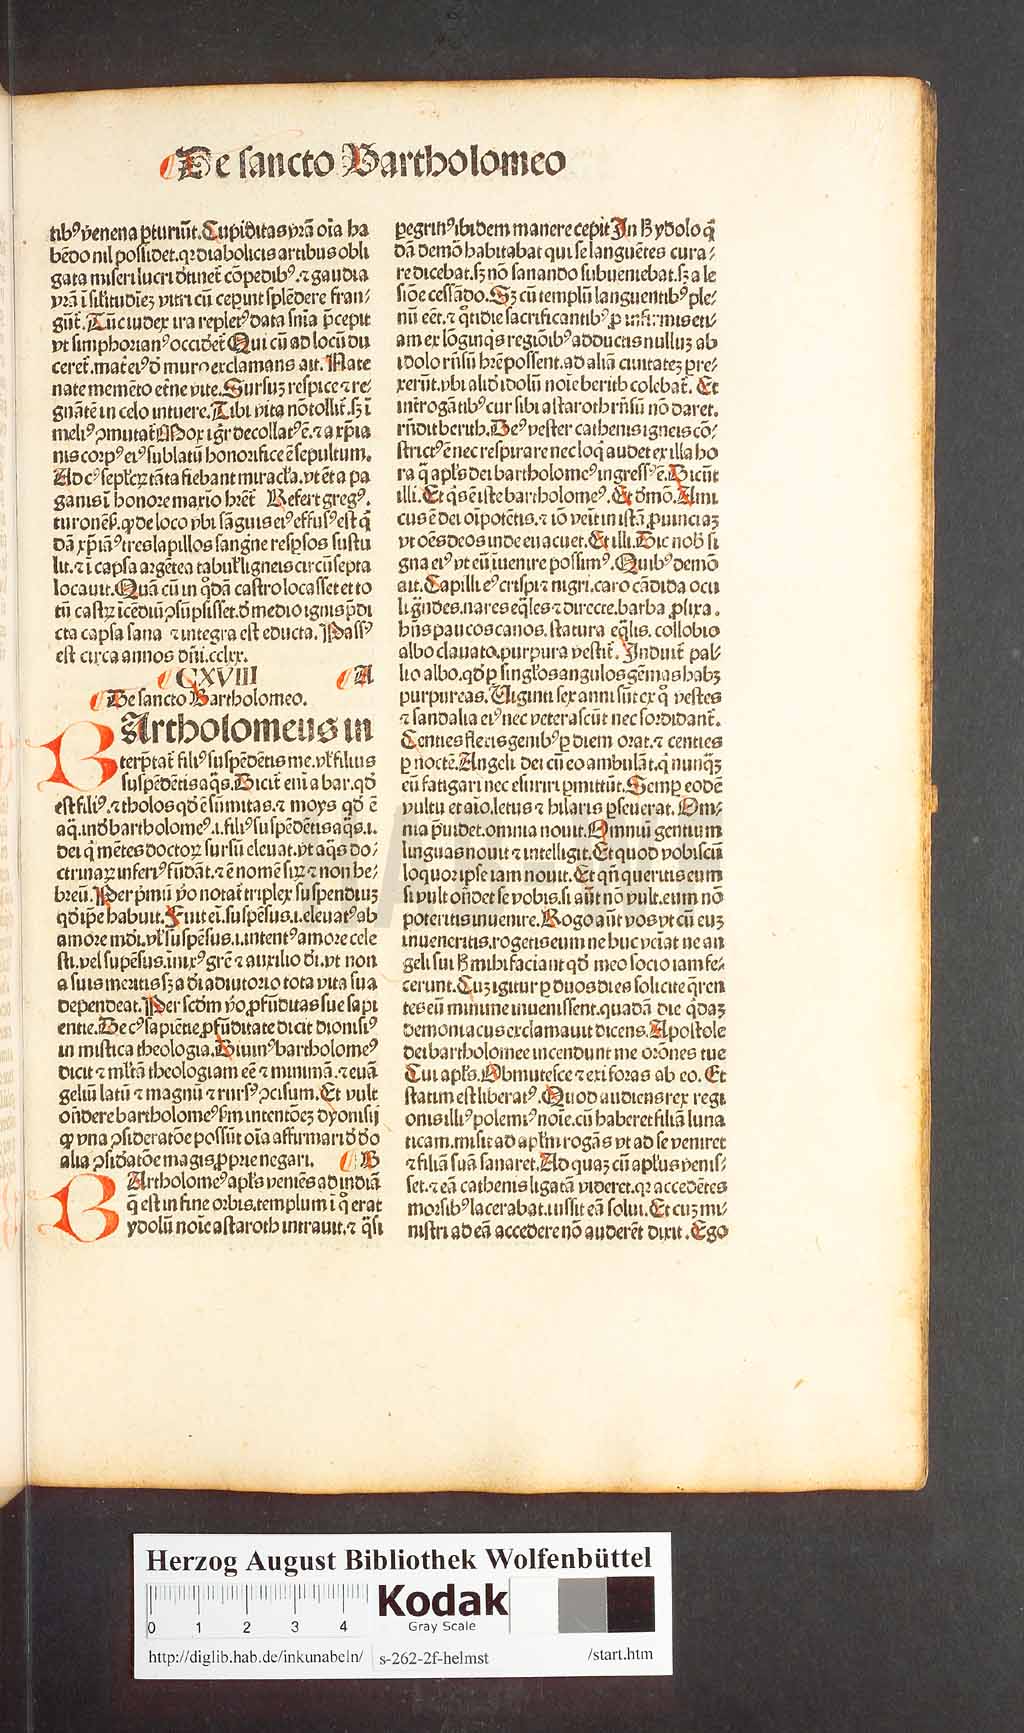 De sancto Bartholomeo
tibꝰ venena ꝑturiūt. Cupiditas vr̄a oīa ha
bēdo nil possidet. qꝛ diabolicis artibus obli
gata miseri lucri detinet̄ cōpedibꝰ. ⁊ gaudia
vr̄a ī sil̓itudinēꝫ vitri cū ceperint splēdere fran⸗
gūt̄. Tūc iudex ira repletꝰ data sn̄ia p̄cepit
vt simphorianꝰ occidet̄ Qui cū ad locū du
ceret̄. mat̄ eiꝰ d̓ muro exclamans ait. Nate
nate memēto et̄ne vite. Sursuꝫ respice ⁊ re⸗
gnātē in celo intuere. Tibi vita nō tollit̄. sꝫ ī
meliꝰ ꝯmutat̄ Mox igr̄ decollatꝰ ē. ⁊ a xp̄ia
nis corpꝰ eiꝰ sublatū honorifice ē sepultum.
Ad cꝰ sepl̓cꝝ tāta fiebant miracl̓a. vt ēta pa
ganis ī honore maxīo hr̄et̄ Refert gregꝰ.
turonēs̓. ꝙ de loco vbi sāguis eiꝰ effusꝰ est q̄
dā xp̄iāꝰ tres lapillos sangīne respsos sustu
lit. ⁊ ī capsa argētea tabul̓ ligneis circūsepta
locauit. Quā cū in qͦdā castro locasset et to
tū castꝝ īcēdiū ꝯsūpsisset. d̓ medio ignis p̄di
cta capsa sana ⁊ integra est educta. Passꝰ
est circa annos dn̄i. cclxx.
CXVIII A
De sancto Bartholomeo.
BArtholomeus in
terp̄tat̄ filiꝰ suspēdētis me. vl̓ filius
suspēdētis aq̄s. Dicit̄ enī a bar. qd̓
est filiꝰ. ⁊ tholos qd̓ ē sūmitas. ⁊ moys qd̓ ē
aq̄. inđ bartholomeꝰ. i. filiꝰ suspēdētis aq̄s. i.
dei qͥ mētes doctoꝝ sursū eleuat. vt aq̄s do⸗
ctrinaꝝ inferiꝰ fūdāt. ⁊ ē nomē siꝝ ⁊ non he⸗
breū. Per pͥmū vͦo notat̄ triplex suspendiuꝫ
qd̓ ip̄e habuit. Fuit eī. suspēsus. i. eleuatꝰ ab
amore mūdi. vl̓ suspēsus. i. intentꝰ amore cele
sti. vel supēsus. inixꝰ grē ⁊ auxilio d̓i. vt non
a suis meritis sꝫ a d̓i adiutorio tota vita sua
dependeat. Per scd̓m vͦo ꝓfūditas sue sapi
entie. De cꝰ sapiētie ꝓfūditate dicit dionisiꝰ
in mistica theologia. Diuinꝰ bartholomeꝰ
dicit ⁊ ml̓tā theologiam eē ⁊ minimā. ⁊ euā
geliū latū ⁊ magnū ⁊ rursꝰ ꝯcisum. Et vult
on̄dere bartholomeꝰ ẜm intentōeꝫ dyonisij
ꝙ vna ꝯsideratōe possūt oīa affirmari d̓ do
alia ꝯsid̓atōe magis ꝓprie negari. B
BArtholomeꝰ apl̓s veniēs ad indiā
q̄ est in fine orbis. templum ī qͦ erat
ydolū noīe astaroth intrauit. ⁊ q̄si
pegrinꝰ ibidem manere cepit In ꝟ ydolo q̄
dā demō habitabat qui se languētes cura⸗
re dicebat. sꝫ nō sanando subueniebat. sꝫ a le
siōe cessādo. Sꝫ cū templū languentibꝰ ple⸗
nū eēt. ⁊ qͦtidie sacrificantibꝰ ꝓ infirmis eti⸗
am ex lōginqͥs regiōibꝰ adductis nulluꝫ ab
idolo rn̄sū hr̄e possent. ad aliā ciuitateꝫ pre⸗
xerūt. vbi aliđ idolū noīe berith colebat̄. Et
int̄rogātibꝰ cur sibi astaroth rn̄sū nō daret.
rn̄dit berith. Deꝰ vester cathenis igneis cō⸗
strictꝰ ē nec respirare nec loq̄ audet ex illa ho
ra q̄ apl̓s dei bartholomeꝰ ingressꝰ ē. Dicūt
illi. Et qͥs ē iste bartholomeꝰ. Et d̓mō. Ami
cus ē dei oīpotētis. ⁊ iō venit in istā ꝓuinciaꝫ
vt oēs deos inde euacuet. Et illi. Dic nob̓ si
gna eiꝰ vt eū īuenire possimꝰ. Quibꝰ demō
ait. Capilli eꝰ crispi ⁊ nigri. caro cādida ocu
li grādes. nares eq̄les ⁊ directe. barba ꝓlixa.
hn̄s paucos canos. statura eq̄lis. collobio
albo clauato. purpura vestit̄. Induit̄ pal⸗
lio albo. qd̓ ꝑ singl̓os angulos gēmas habꝫ
purpureas. Viginti sex anni sūt ex qͦ vestes
⁊ sandalia eiꝰ nec veterascūt nec sordidant̄.
Centies flexis genibꝰ ꝑ diem orat. ⁊ centies
ꝑ noctē. Angeli dei cū eo ambulāt. qͥ nunqͣꝫ
eū fatigari nec esuriri ꝑmittūt. Semꝑ eodē
vultu et aīo. letus ⁊ hilaris ꝑseuerat. Om⸗
nia p̄uidet. omnia nouit. Omniū gentium
linguas nouit ⁊ intelligit. Et quod vobiscū
loquor ipse iam nouit. Et qn̄ queritis eum
si vult on̄det se vobis. si aūt nō vult. eum nō
poteritis inuenire. Rogo aūt vos vt cū euꝫ
inueneritis. rogetis eum ne huc veniat ne an
geli sui ꝟ mihi faciant qd̓ meo socio iam fe⸗
cerunt. Cuꝫ igitur ꝑ duos dies solicite q̄ren
tes eū minime inuenissent. quadā die qͥdaꝫ
demoniacus exclamauit dicens. Apostole
dei bartholomee incendunt me orōnes tue
Cui apl̓s. Obmutesce ⁊ exi foras ab eo. Et
statim est liberatꝰ. Quod audiens rex regi
onis illiꝰ polemiꝰ noīe. cū haberet filiā luna
ticam. misit ad apl̓m rogās vt ad se veniret
⁊ filiā suā sanaret. Ad quaꝫ cū apl̓us venis⸗
set. ⁊ eā cathenis ligatā videret. qꝛ accedētes
morsibꝰ lacerabat. iussit eā solui. Et cuꝫ mi⸗
nistri ad eā accedere nō auderēt dixit. Ego
HAB-WF
Herzog August Bibliothek Wolfenbüttel
0 1 2 3 4
Kodak
Gray Scale
http://diglib.hab.de/inkunabeln/ s-262-2f-helmst /start.htm